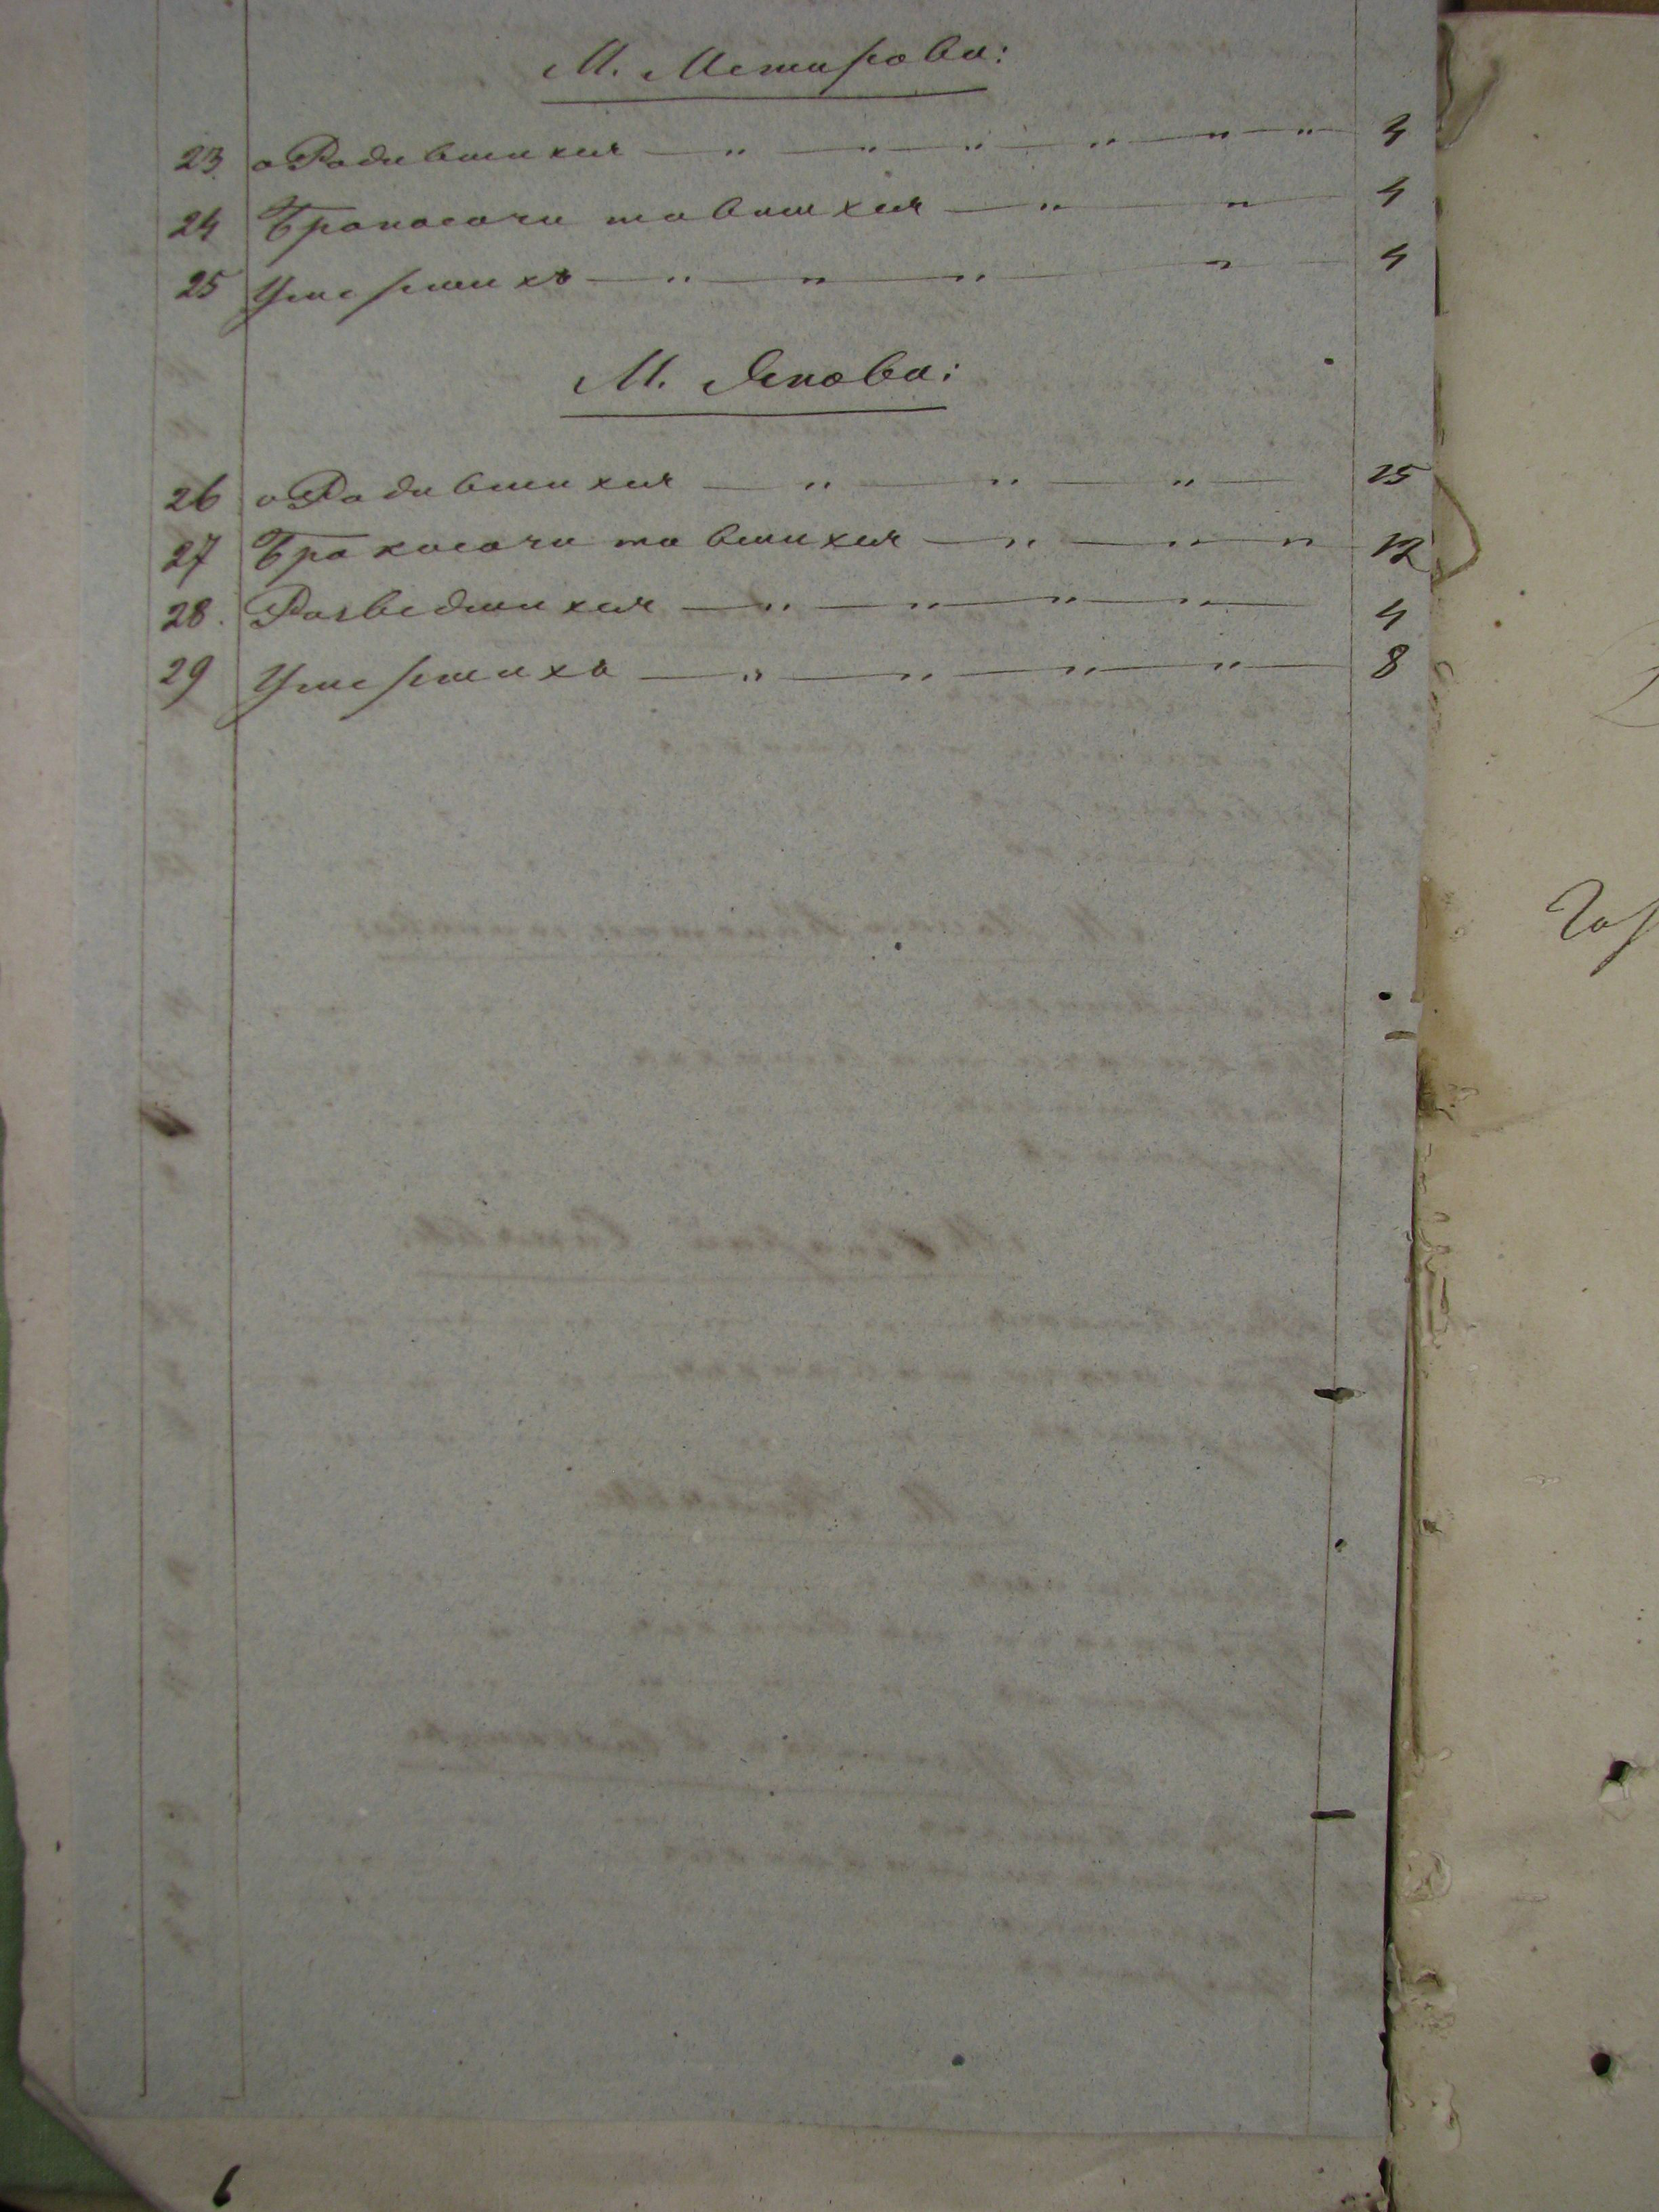 М. Мстирова:
23. о Родившихся — „ — „ — „ — „ — „ — „ — 4
24 Бракосочитавшихся — „ — „ — 4
25 Умершихъ — „ — „ — „ — „ — 4
М. Янова:
26 о Родившихся — „ — „ — „ — 15
27 Бракосочитавшихся — „ — „ — „ — 12
28. Розведшихся — „ — „ — „ — „ — 4
29 Умершихъ — „ — „ — „ — „ — 8